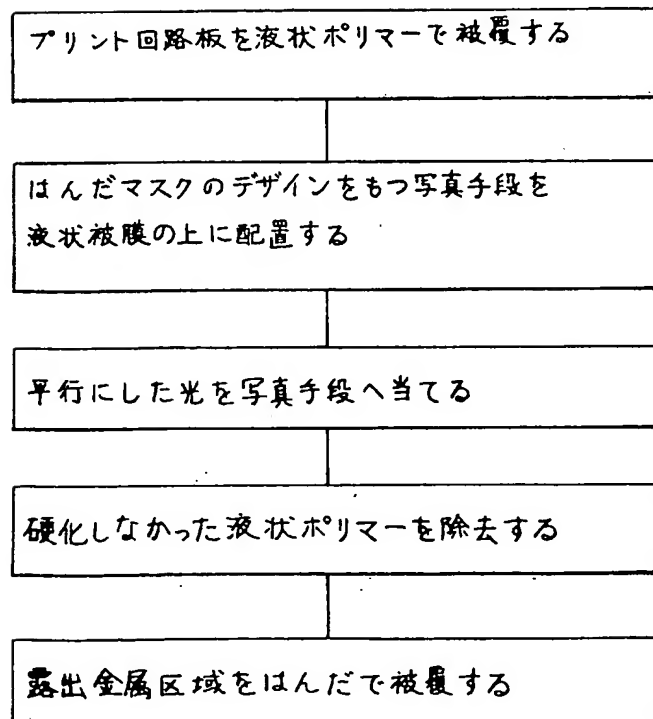 プリント回路板を液状ポリマーで被覆する
はんだマスクのデザインをもつ写真手段を
液状被膜の上に配置する
平行にした光を写真手段へ当てる
硬化しなかった液状ポリマーを除去する
露出金属区域をはんだで被覆する